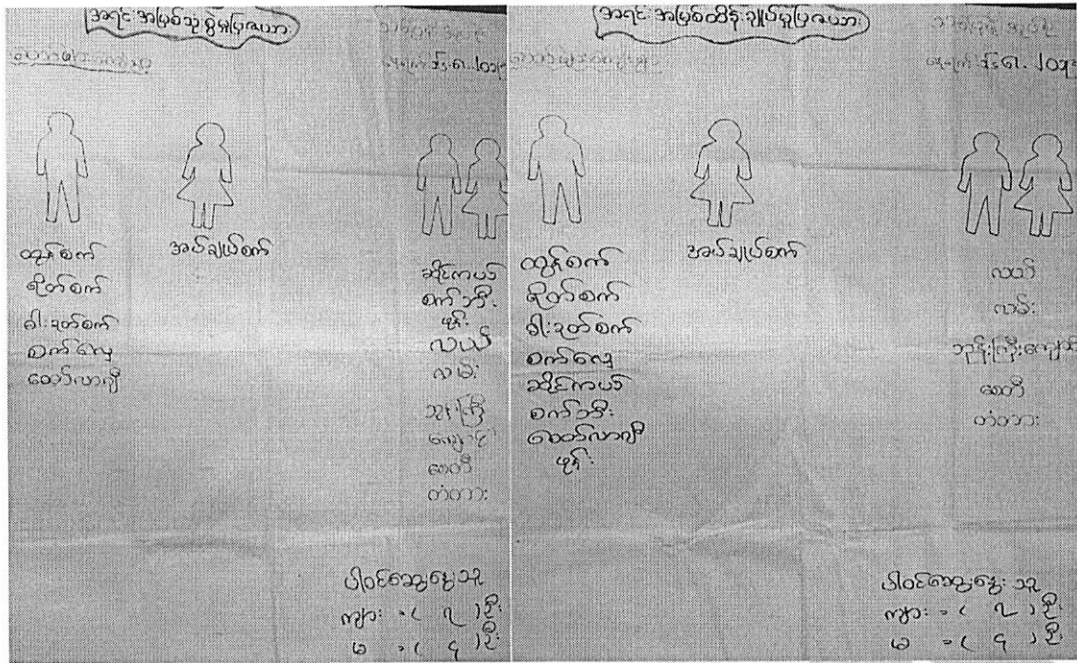 အရင်းအမြစ်သုံးစွဲမှုပြဇယား
ထွန်စက်
ရိတ်စက်
ဓါးခုတ်စက်
စက်လှေ
ထော်လာဂျီ
အပ်ချုပ်စက်
ဆိုင်ကယ်
စက်ဘီး
ဖုန်း
လယ်
လမ်း
ဘုန်းကြီး
ကျောင်း
စေတီ
တံတား
ပါဝင်ဆွေးနွေးသူ
ကျား = ( ၇ ) ဦး
မ = ( ၄ ) ဦး
အရင်းအမြစ်ထိန်းချုပ်မှုပြဇယား
ထွန်စက်
ရိတ်စက်
ဓါးခုတ်စက်
စက်လှေ
ဆိုင်ကယ်
စက်ဘီး
ထော်လာဂျီ
ဖုန်း
အပ်ချုပ်စက်
လယ်
လမ်း
ဘုန်းကြီးကျောင်း
စေတီ
တံတား
ပါဝင်ဆွေးနွေးသူ
ကျား = ( ၇ ) ဦး
မ = ( ၄ ) ဦး